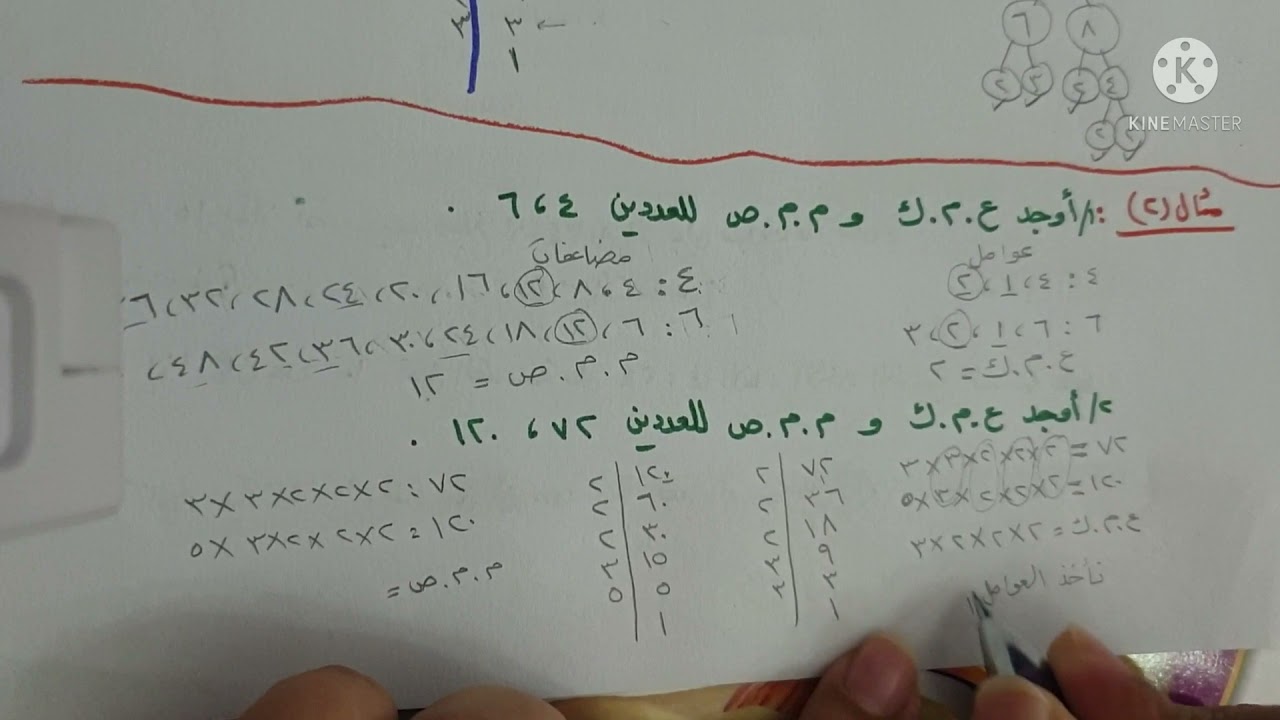 ٣ ←
١
٦ ٨
٢ ٣ ٢ ٤
٢ ٢
KINEMASTER
مثال (٢) : ١/ أوجد ع.م.ك و م.م.ص للعددين ٤ ، ٦ .
عوامل
٤ : ٤ ، ١ ، ٢
٦ : ٦ ، ١ ، ٢ ، ٣
ع.م.ك = ٢
مضاعفات
٤ : ٤ ، ٨ ، ١٢ ، ١٦ ، ٢٠ ، ٢٤ ، ٢٨ ، ٣٢ ، ٣٦
٦ : ٦ ، ١٢ ، ١٨ ، ٢٤ ، ٣٠ ، ٣٦ ، ٤٢ ، ٤٨ ،
م.م.ص = ١٢
٢/ أوجد ع.م.ك و م.م.ص للعددين ٧٢ ، ١٢٠ .
٧٢ = ٢×٢×٢×٣×٣
١٢٠ = ٢×٢×٢×٣×٥
ع.م.ك = ٢×٢×٢×٣
نأخذ العوامل
٧٢ | ٢
٣٦ | ٢
١٨ | ٢
٩ | ٣
٣ | ٣
١
١٢٠ | ٢
٦٠ | ٢
٣٠ | ٢
١٥ | ٣
٥ | ٥
١
٧٢ : ٢×٢×٢×٣×٣
١٢٠ = ٢×٢×٢×٣×٥
م.م.ص =